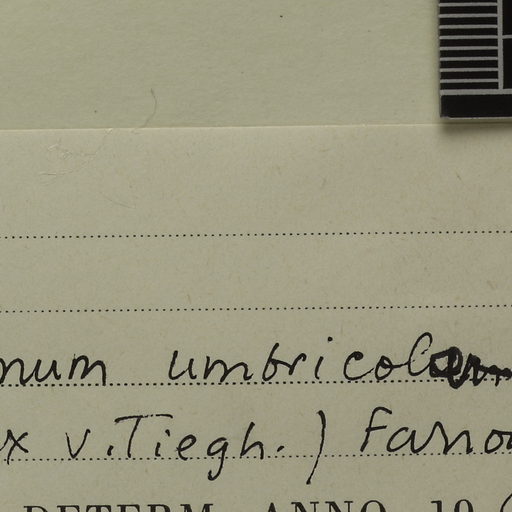 num umbricola
x v.Tiegh.) Fano
DETERM. ANNO 19